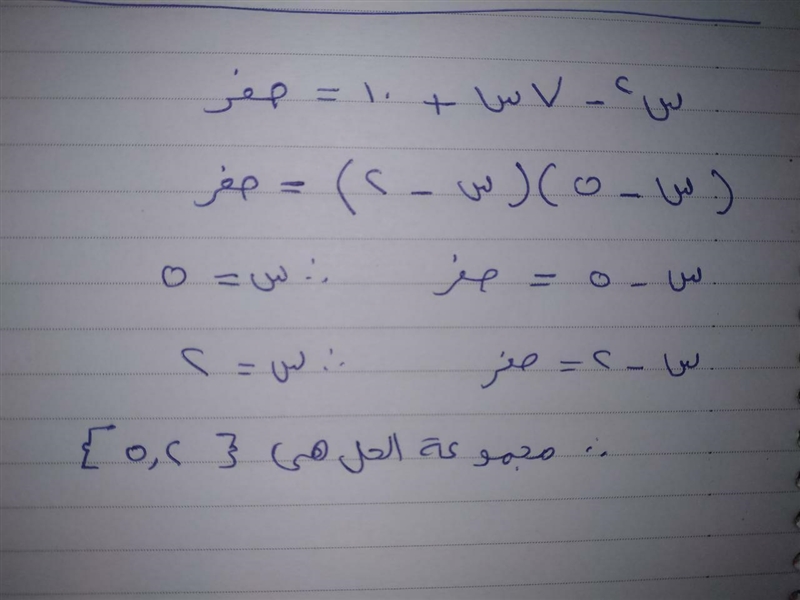 س² - ٧س + ١٠ = صفر
(س - ٥)(س - ٢) = صفر
س - ٥ = صفر ∴ س = ٥
س - ٢ = صفر ∴ س = ٢
∴ مجموعة الحل هى {٢,٥}